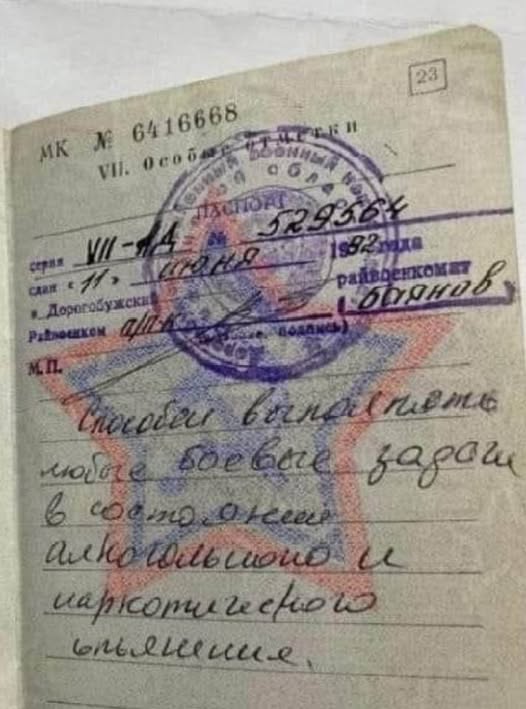 23
МК № 6416668
VII. Особые отметки
ПАСПОРТ
серия VII-АД № 529564
сдан «11» июня 1992 года
в Дорогобужский райвоенкомат
Райвоенком п/п-к (Баянов)
подпись)
М.П.
Способен выполнять
любые боевые задачи
в состоянии
алкогольного и
наркотического
опьянения.